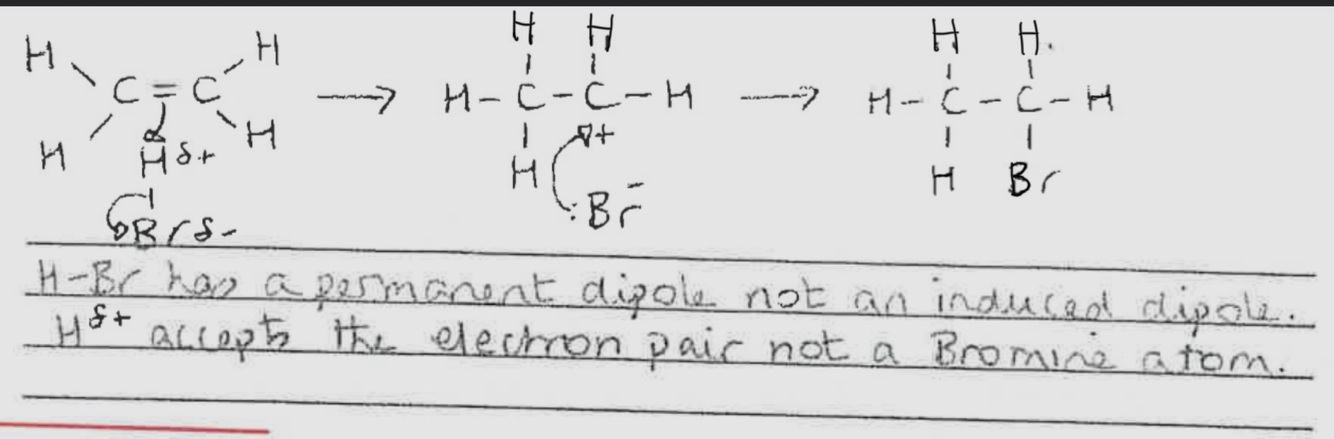 H H H H H H
C = C → H - C - C - H → H - C - C - H
H H δ+ H H + H Br
Br δ- :Br -
H-Br has a permanent dipole not an induced dipole.
H δ+ accepts the electron pair not a Bromine atom.